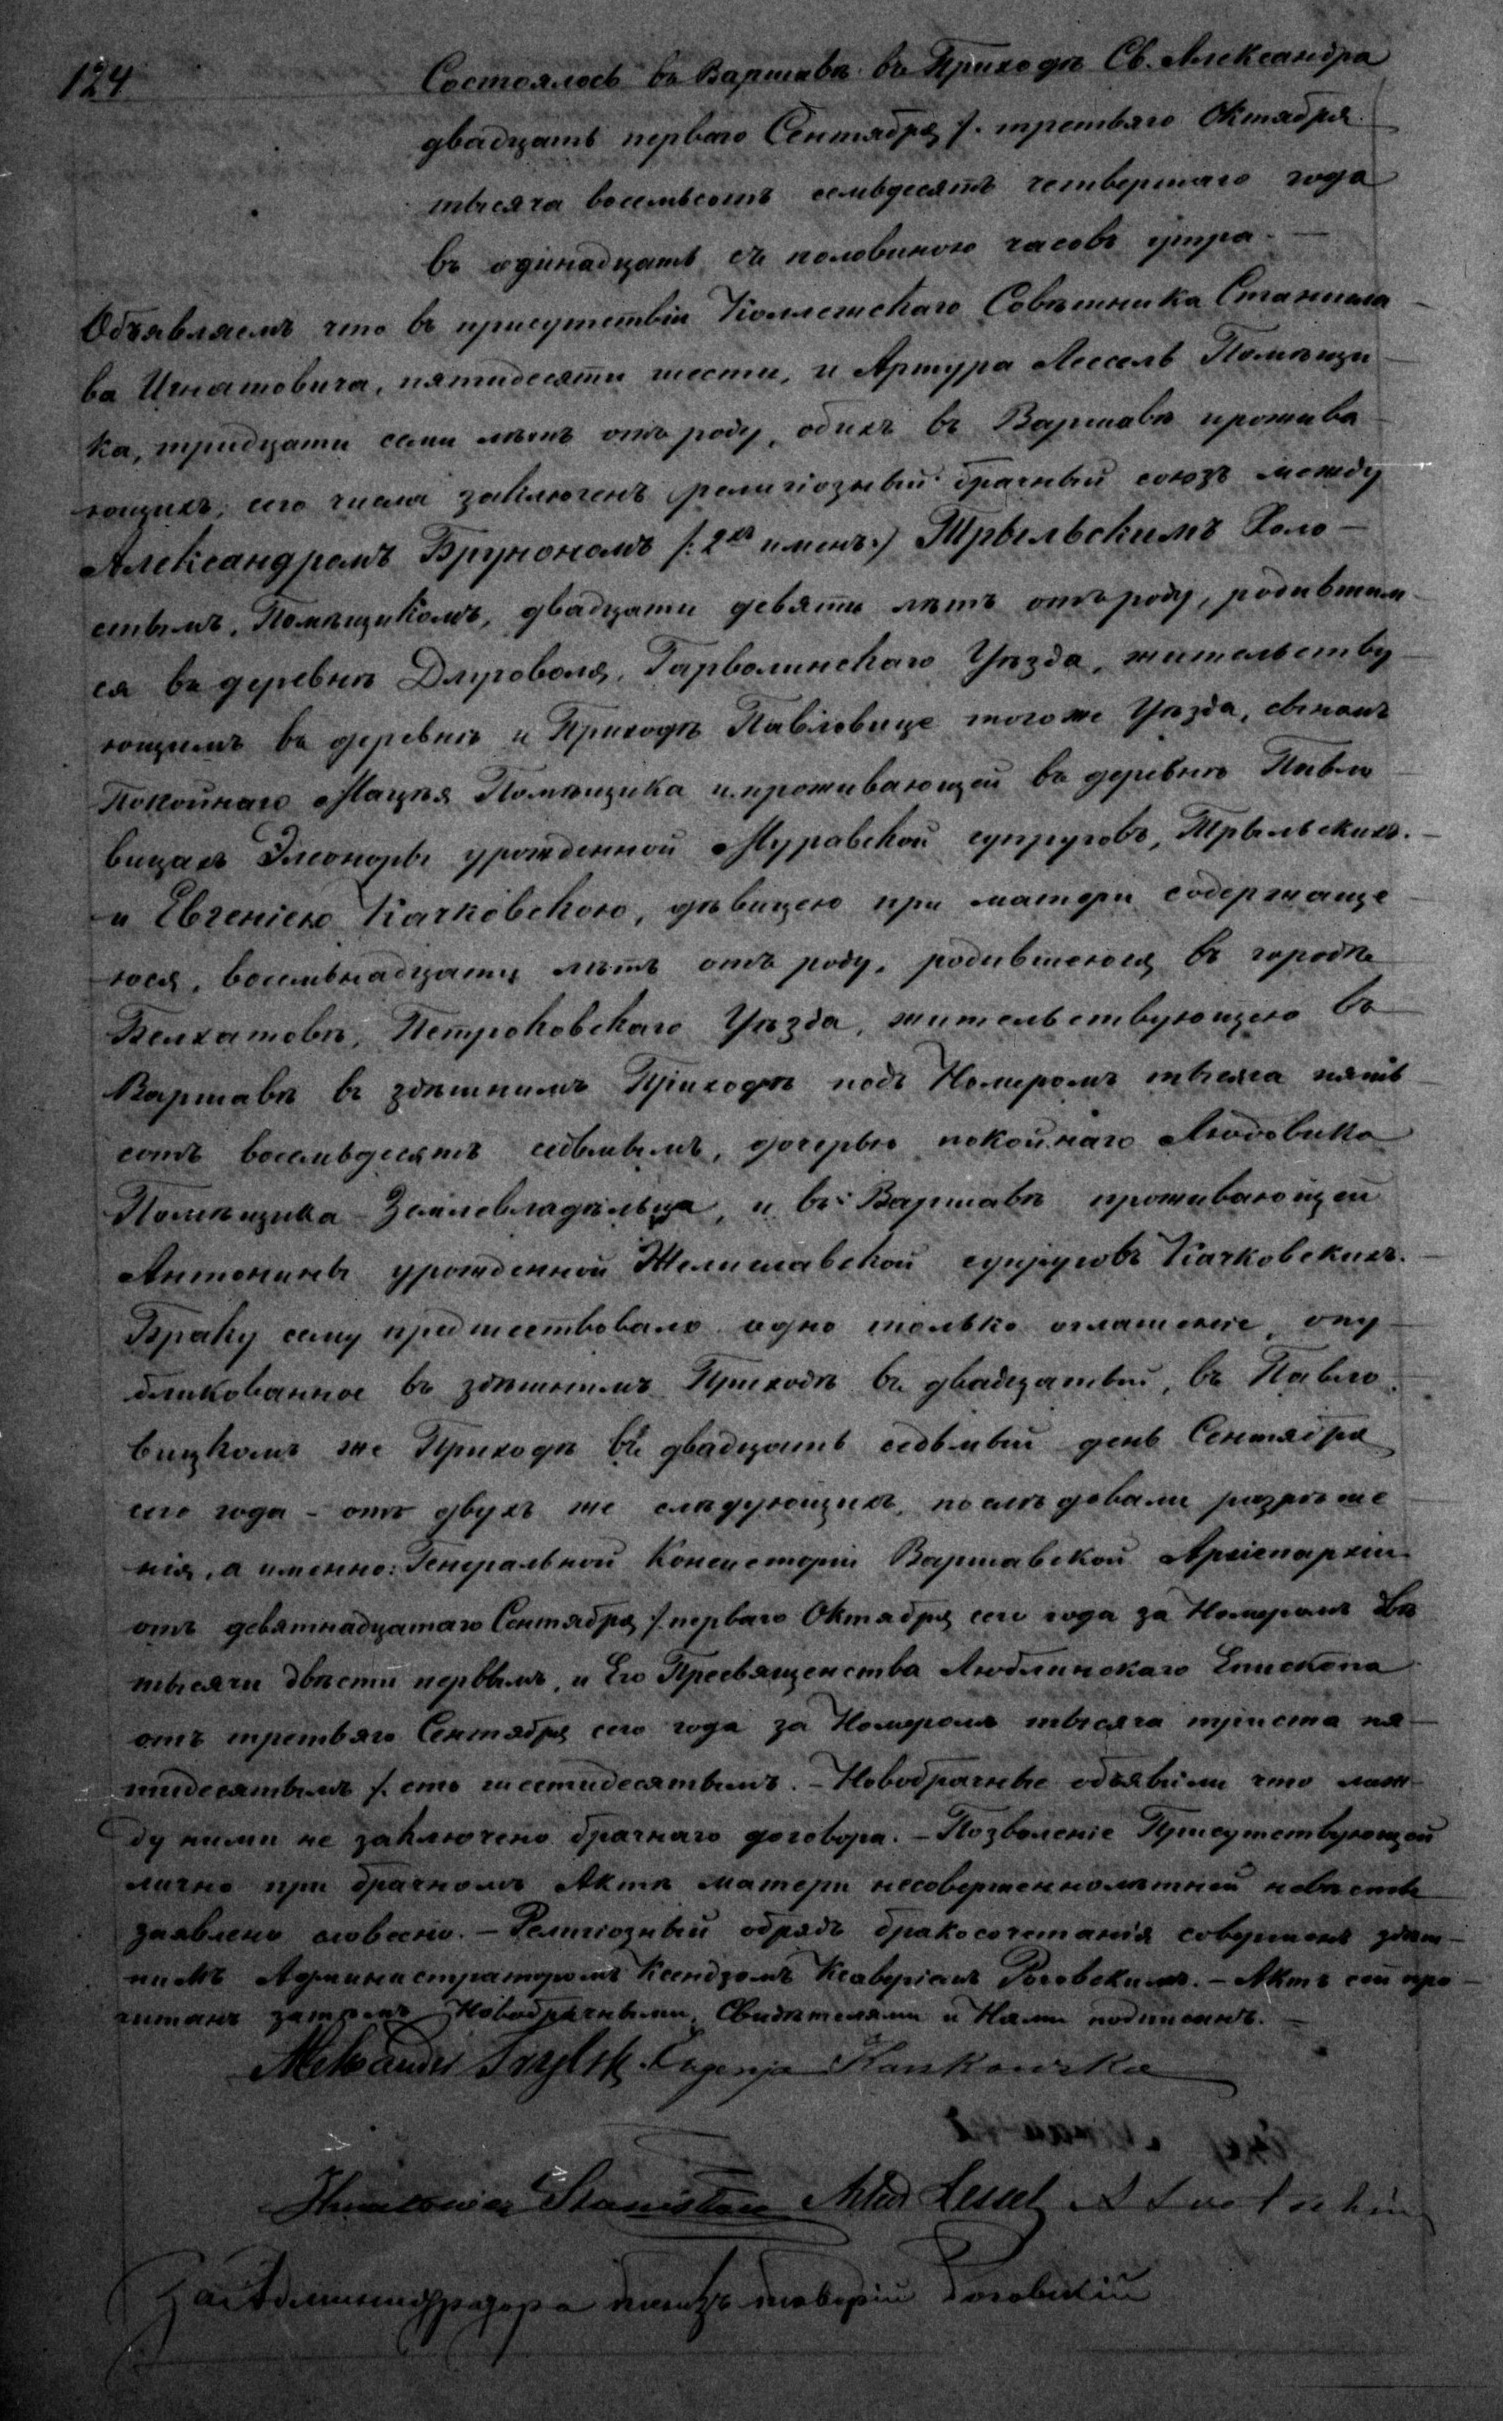 124
Состоялось въ Варшавѣ въ Приходѣ Св. Александра
двадцать перваго Сентября /: третьяго Октября
тысяча восемьсотъ семьдесятъ четвертаго года
въ одинадцать съ половиною часовъ утра. —
Объявляемъ что въ присутствіи Коллежскаго Совѣтника Станисла
ва Игнатовича, пятидесяти шести, и Артура Лессель Помѣщи
ка, тридцати семи лѣтъ отъ роду, обихъ въ Варшавѣ прожива
ющихъ, сего числа заключенъ религіозный брачный союзъ между
Александромъ Брунономъ /: 2хъ именъ:/ Трыльскимъ Холо —
стымъ, Помѣщикомъ, двадцати девяти лѣтъ отъ роду, родившим
ся въ деревнѣ Длуговоля, Гарволинскаго Уѣзда, жительству
ющимъ въ деревнѣ и Приходѣ Павловице тогоже Уѣзда, сыномъ
Покойнаго Мацѣя Помѣщика и проживающей въ деревнѣ Павло
вицахъ Элеоноры урожденной Муравской супруговъ, Трыльскихъ. —
и Евгеніею Качковскою, дѣвицею при матери содержаще
юся, восемьнадцати лѣтъ отъ роду, родившеюся въ городѣ
Белхатовѣ, Петроковскаго Уѣзда, жительствующею въ
Варшавѣ въ здѣшнимъ Приходѣ подъ Номеромъ тысяча пять
сотъ восемьдесятъ седьмымъ, дочерью покойнаго Людовика
Помѣщика Землевладѣльца, и въ Варшавѣ проживающей
Антонины урожденной Желиславской супруговъ Качковскихъ. —
Браку сему предшествовало одно только оглашеніе, опу
бликованное въ здѣшнимъ Приходѣ въ двадцатый, въ Павло
вицкомъ же Приходѣ въ двадцать седьмый день Сентября
сего года - отъ двухъ же слѣдующихъ, послѣдовали разрѣше
нія, а именно: Генеральной Консисторіи Варшавской Архіепархіи
отъ девятнадцатаго Сентября /: перваго Октября сего года за Номеромъ двѣ
тысячи двѣсти первымъ, и Его Преосвященства Люблинскаго Епископа
отъ третьяго Сентября сего года за Номеромъ тысяча триста пя —
тидесятымъ /: сто шестидесятымъ. — Новобрачные объявили что меж
ду ними не заключено брачнаго договора. — Позволеніе Присутствующей
лично при брачномъ Актѣ матери несовершеннолѣтней невѣсты
заявлено словесно. — Религіозный обрядъ бракосочетанія совершенъ здѣш —
нимъ Администраторомъ Ксендзомъ Ксаверіемъ Роговскимъ. — Актъ сей про
читанъ затѣмъ Новобрачными, Свидѣтелями и Нами подписанъ. —
Aleksander Trylski Eugenja Kaczkowska
Ihnatowicz Stanisław Artur Lessel
За Администратора Ксендзъ Ксаверій Роговскій